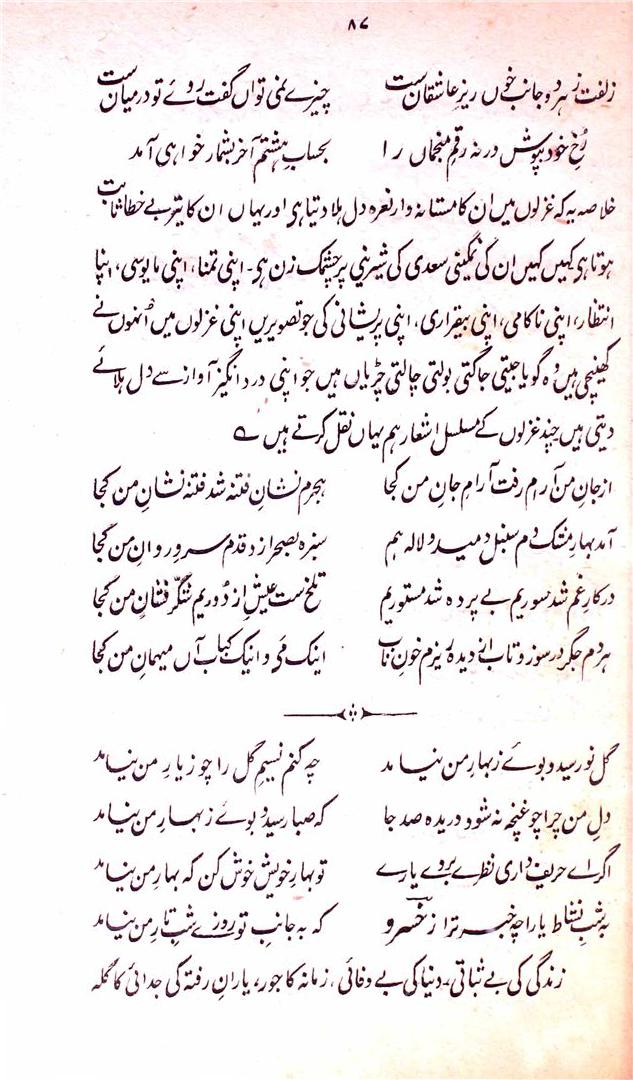 ۸۷
زلفت ز ہر دو جانب خوں ریز عاشقان ست چیزے نمی تواں گفت روئے تو درمیان ست
رُخِ خود بپوش ورنہ رقم منجماں را بحساب ہشتم آخر بشمار خواہی آمد
خلاصہ یہ کہ غزلوں میں ان کا مستانہ وار نعرہ دل ہلا دیتا ہی اور یہاں ان کا تیر بے خطا ثابت
ہوتا ہی کہیں کہیں ان کی نمکینی سعدی کی شیرینی پر چشمک زن ہی۔ اپنی تمنا، اپنی مایوسی، اپنا
انتظار، اپنی ناکامی، اپنی بیقراری، اپنی پریشانی کی جو تصویریں اپنی غزلوں میں اُنہوں نے
کھینچی ہیں وُہ گویا جیتی جاگتی بولتی چالتی چڑیاں ہیں جو اپنی درد انگیز آواز سے دل ہلائے
دیتی ہیں چند غزلوں کے مسلسل اشعار ہم یہاں نقل کرتے ہیں ے
از جانِ من آرام رفت آرامِ جانِ من کجا ہجرم نشانِ فتنہ شد فتنہ نشانِ من کجا
آمد بہارِ مشک دم سنبل دمید و لالہ ہم سبزہ بصحرا زد قدم سروِ روانِ من کجا
در کارِ غم شد سوریم بے پردہ شد مستوریم تلخ ست عیش از دُوریم شکّر فشانِ من کجا
ہر دم جگر در سوز و تاب از دیدہ ریزم خونِ ناب اینک مَی و اینک کباب آں میہمانِ من کجا
گل نو رسید و بوئے ز بہارِ من نیامد چہ کنم نسیمِ گل را چو ز یارِ من نیامد
دلِ من چرا چو غنچہ نہ شود دریدہ صد جا کہ صبا رسید و بوئے ز بہارِ من نیامد
اگر اے حریف داری نظرے بروے یارے تو بہارِ خویش خوش کن کہ بہارِ من نیامد
بہ شبِ نشاط یارا چہ خبر ترا ز خسرو کہ بہ جانبِ تو روزے شبِ تارِ من نیامد
زندگی کی بے ثباتی۔ دنیا کی بے وفائی، زمانہ کا جور، یارانِ رفتہ کی جدائی کا گلہ